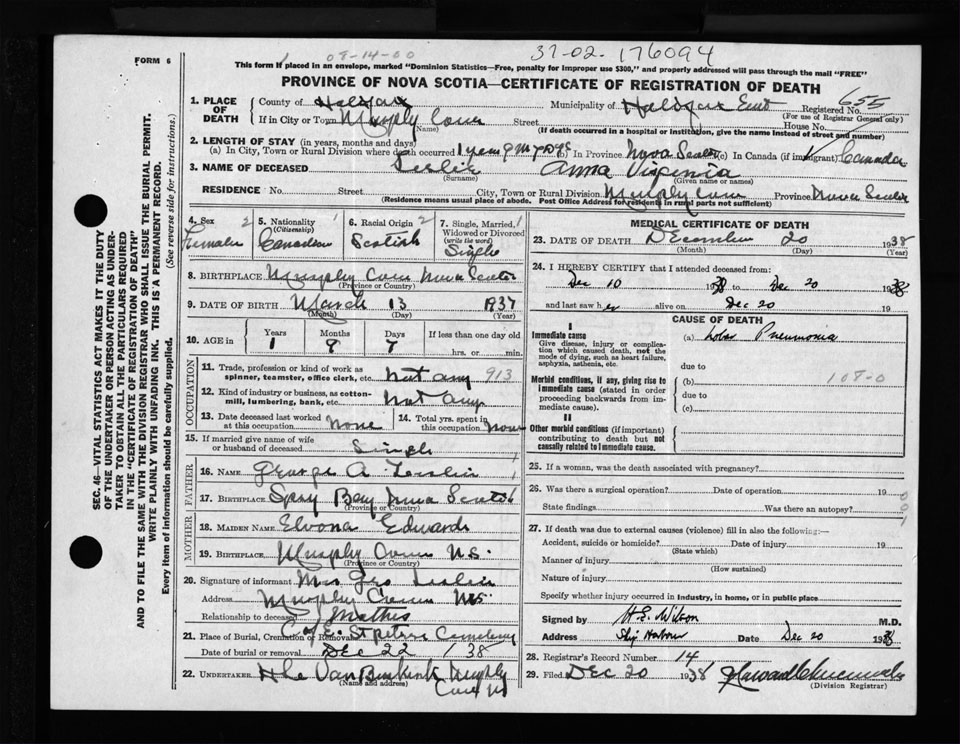 FORM 6
08-14-00
37-02-176094
This form if placed in an envelope, marked "Dominion Statistics—Free, penalty for improper use $300," and properly addressed will pass through the mail "FREE"
PROVINCE OF NOVA SCOTIA—CERTIFICATE OF REGISTRATION OF DEATH
1. PLACE OF DEATH
County of Halifax Municipality of Halifax East Registered No. 655
(For use of Registrar General only)
If in City or Town Murphy Cove Street House No.
(Name) (If death occurred in a hospital or institution, give the name instead of street and number)
2. LENGTH OF STAY (in years, months and days)
(a) In City, Town or Rural Division where death occurred 1 year 9 m 7 dys (b) In Province Nova Scotia (c) In Canada (if immigrant) Canada
3. NAME OF DECEASED Leslie Anna Virginia
(Surname) (Given name or names)
RESIDENCE No. Street City, Town or Rural Division Murphy Cove Province Nova Scotia
(Residence means usual place of abode. Post Office Address for residents in rural parts not sufficient)
4. Sex 2 Female
5. Nationality (Citizenship) 1 Canadian
6. Racial Origin 2 Scotish
7. Single, Married, Widowed or Divorced (write the word) 1 Single
8. BIRTHPLACE Murphy Cove Nova Scotia
(Province or Country)
9. DATE OF BIRTH March 13 1937
(Month) (Day) (Year)
10. AGE in Years Months Days If less than one day old
1 9 7 hrs. or min.
OCCUPATION
11. Trade, profession or kind of work as spinner, teamster, office clerk, etc. Not any 913
12. Kind of industry or business, as cotton-mill, lumbering, bank, etc. Not any
13. Date deceased last worked at this occupation None
14. Total yrs. spent in this occupation None
15. If married give name of wife or husband of deceased Single
FATHER
16. NAME George A Leslie
17. BIRTHPLACE Spry Bay Nova Scotia
(Province or Country)
MOTHER
18. MAIDEN NAME Elvona Edwards
19. BIRTHPLACE Murphy Cove N.S.
(Province or Country)
20. Signature of informant Mrs Geo Leslie
Address Murphy Cove N.S.
Relationship to deceased Mother
21. Place of Burial, Cremation or Removal C of E. St Peters Cemetery
Date of burial or removal Dec 22 / 38
22. UNDERTAKER Van Buskirk Murphy Cove NS
(Name and address)
MEDICAL CERTIFICATE OF DEATH
23. DATE OF DEATH December 20 1938
(Month) (Day) (Year)
24. I HEREBY CERTIFY that I attended deceased from:
Dec 10 1938 to Dec 20 1938
and last saw her alive on Dec 20 19
CAUSE OF DEATH
I
Immediate cause
Give disease, injury or complication which caused death, not the mode of dying, such as heart failure, asphyxia, asthenia, etc.
(a) Lobar Pneumonia
due to
Morbid conditions, if any, giving rise to immediate cause (stated in order proceeding backwards from immediate cause).
(b) 108-0
due to
(c)
II
Other morbid conditions (if important) contributing to death but not causally related to immediate cause.
25. If a woman, was the death associated with pregnancy?
26. Was there a surgical operation? Date of operation 19
State findings Was there an autopsy?
0
0
1
27. If death was due to external causes (violence) fill in also the following:—
Accident, suicide or homicide? Date of injury 19
(State which)
Manner of injury
(How sustained)
Nature of injury
Specify whether injury occurred in industry, in home, or in public place
Signed by H.E. Wilson M.D.
Address Ship Harbour Date Dec 20 1938
28. Registrar's Record Number 14
29. Filed Dec 20 1938 Howard
(Division Registrar)
SEC. 46—VITAL STATISTICS ACT MAKES IT THE DUTY
OF THE UNDERTAKER OR PERSON ACTING AS UNDERTAKER TO OBTAIN ALL THE PARTICULARS REQUIRED
IN THE "CERTIFICATE OF REGISTRATION OF DEATH"
AND TO FILE THE SAME WITH THE DIVISION REGISTRAR WHO SHALL ISSUE THE BURIAL PERMIT.
WRITE PLAINLY WITH UNFADING INK. THIS IS A PERMANENT RECORD.
Every item of information should be carefully supplied. (See reverse side for instructions.)